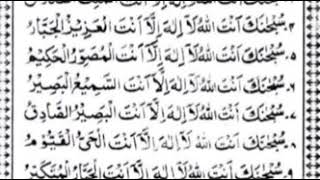 ٣. سُبْحٰنَكَ اَنْتَ اللهُ لَآ اِلٰهَ اِلَّآ اَنْتَ الْعَزِيْزُ الْجَبَّارُ
٥. سُبْحٰنَكَ اَنْتَ اللهُ لَآ اِلٰهَ اِلَّآ اَنْتَ الْمُصَوِّرُ الْحَكِيْمُ
٦. سُبْحٰنَكَ اَنْتَ اللهُ لَآ اِلٰهَ اِلَّآ اَنْتَ السَّمِيْعُ الْبَصِيْرُ
٧. سُبْحٰنَكَ اَنْتَ اللهُ لَآ اِلٰهَ اِلَّآ اَنْتَ الْبَصِيْرُ الصَّادِقُ
٨. سُبْحٰنَكَ اَنْتَ اللهُ لَآ اِلٰهَ اِلَّآ اَنْتَ الْحَىُّ الْقَيُّوْمُ
٩. سُبْحٰنَكَ اَنْتَ اللهُ لَآ اِلٰهَ اِلَّآ اَنْتَ الْجَبَّارُ الْمُتَكَبِّرُ